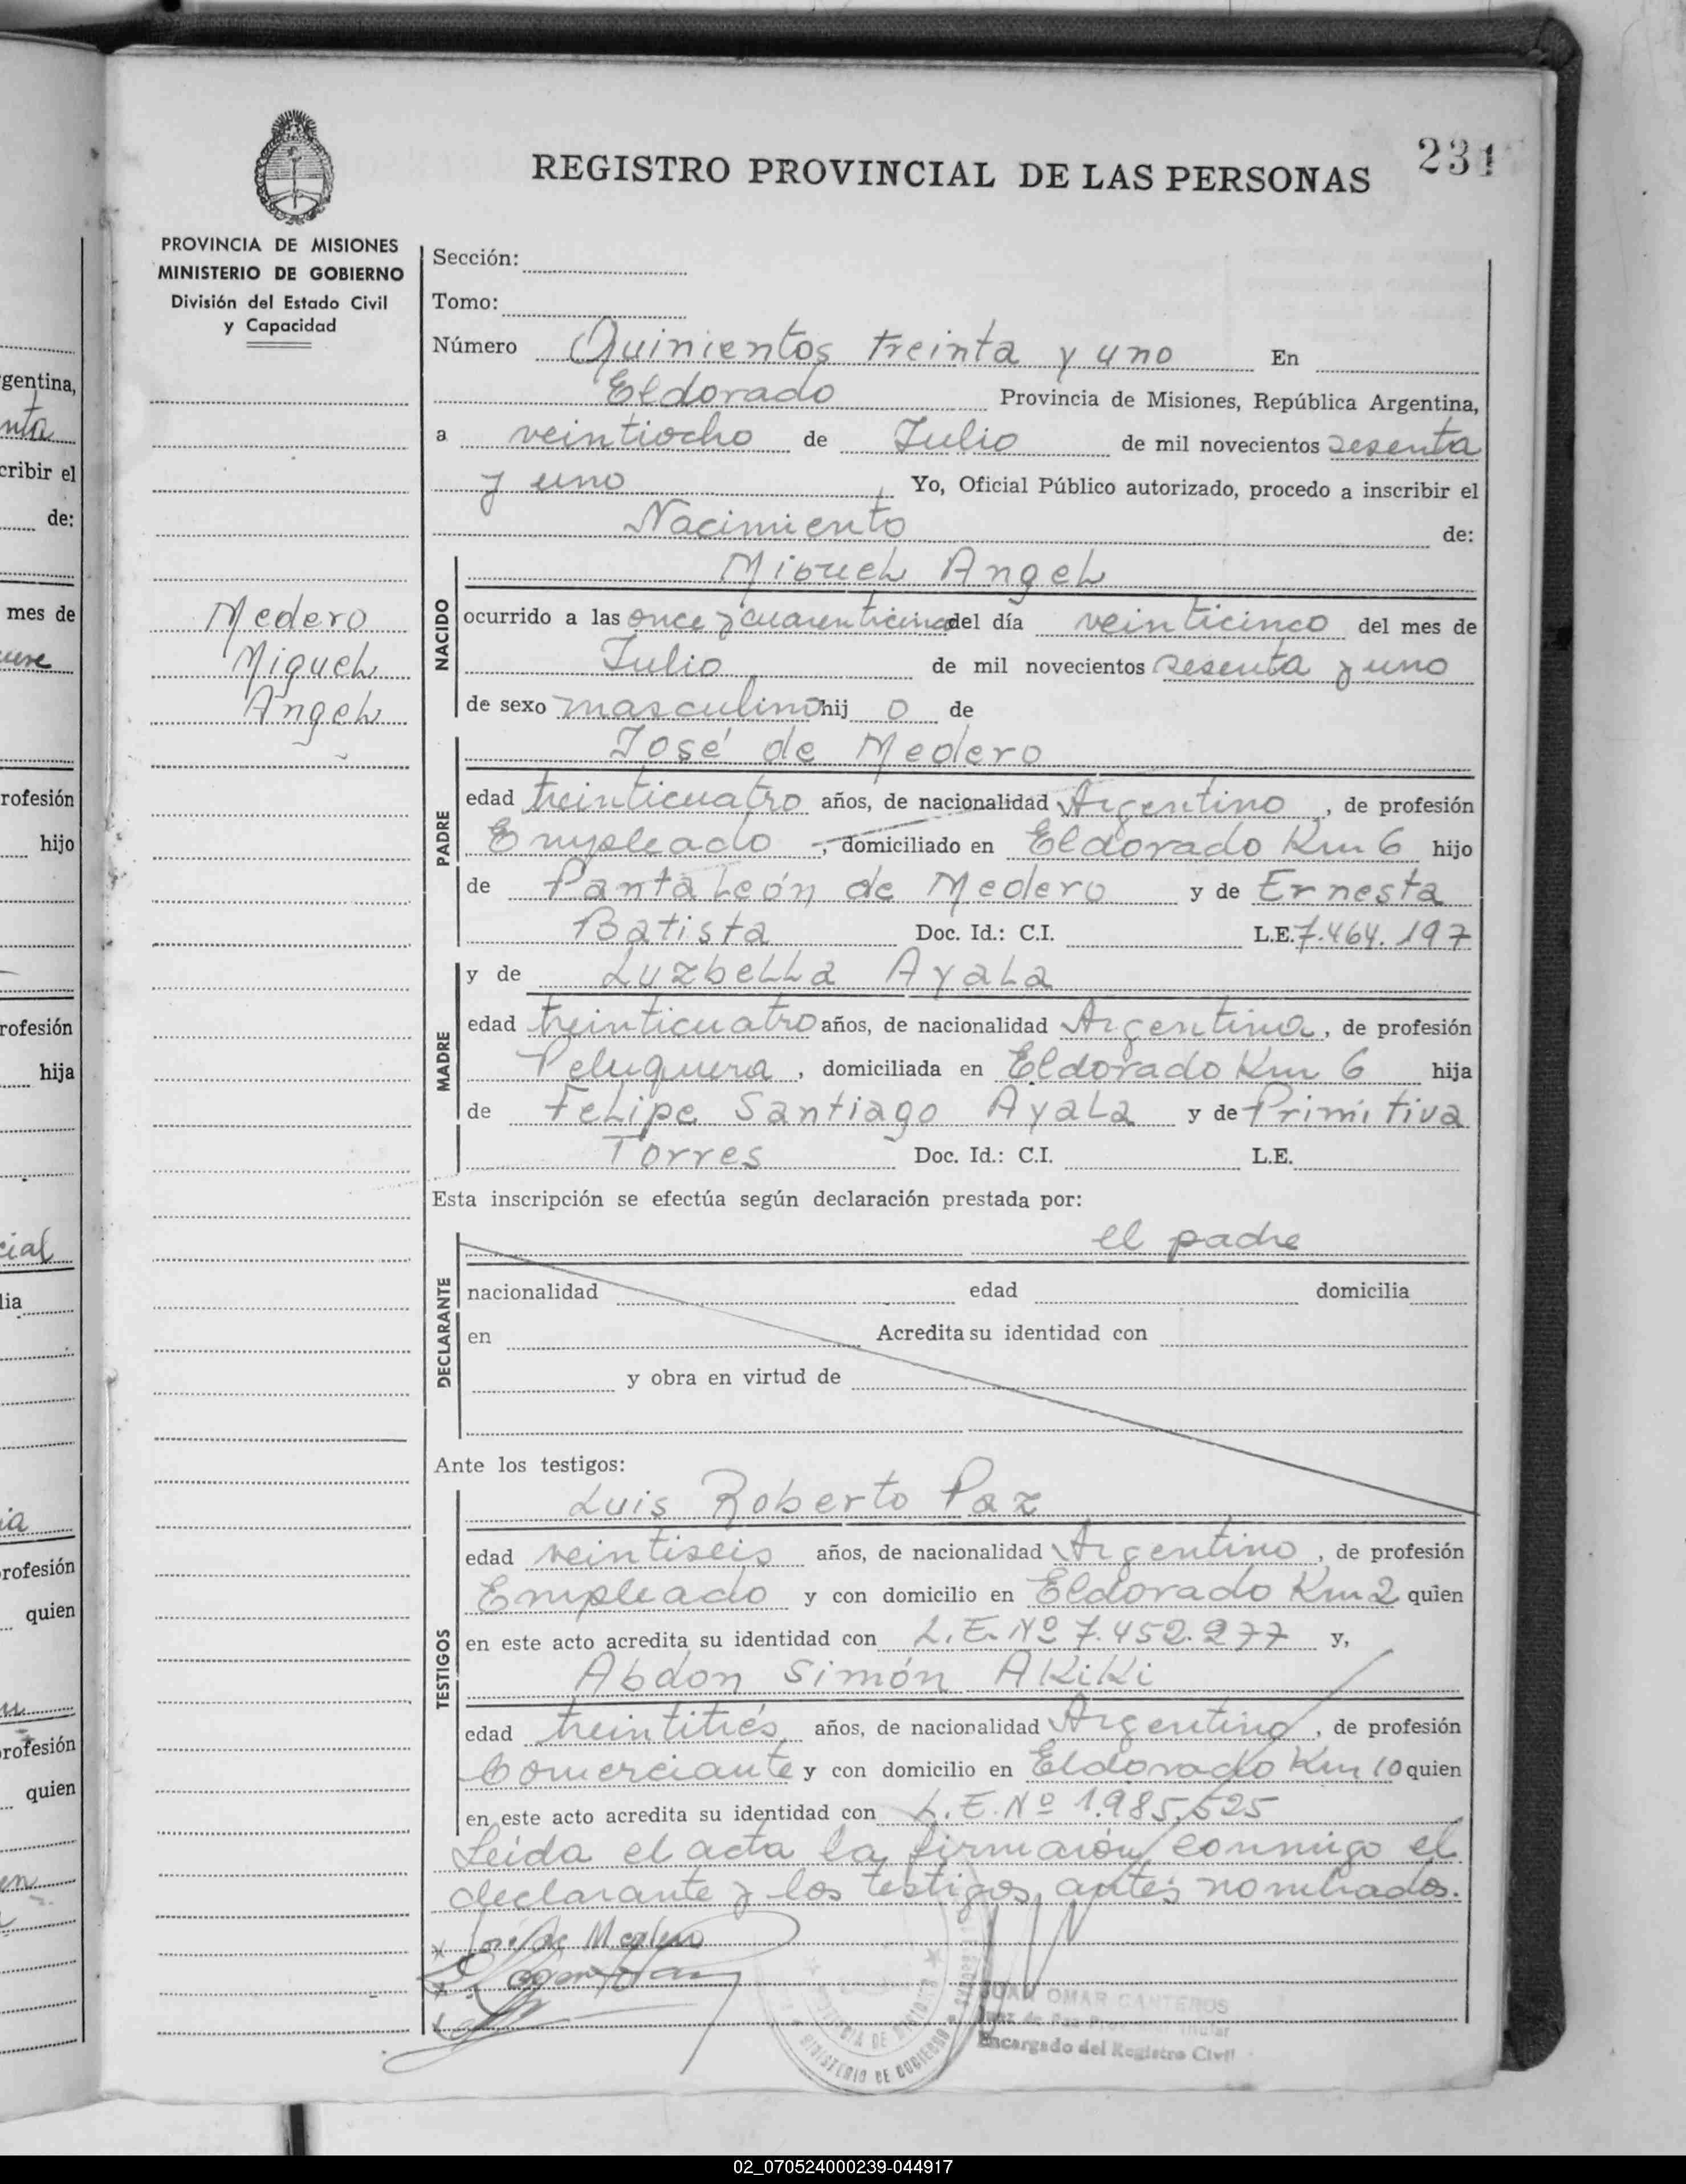 231
REGISTRO PROVINCIAL DE LAS PERSONAS
PROVINCIA DE MISIONES
MINISTERIO DE GOBIERNO
División del Estado Civil
y Capacidad
Medero
Miguel
Angel
Sección:
Tomo:
Número Quinientos treinta y uno En
Eldorado Provincia de Misiones, República Argentina,
a veintiocho de Julio de mil novecientos sesenta
y uno Yo, Oficial Público autorizado, procedo a inscribir el
Nacimiento de:
NACIDO
Miguel Angel
ocurrido a las once y cuarenticinco del día veinticinco del mes de
Julio de mil novecientos sesenta y uno
de sexo masculino hij o de
PADRE
José de Medero
edad treinticuatro años, de nacionalidad Argentino, de profesión
Empleado, domiciliado en Eldorado Km 6 hijo
de Pantaleón de Medero y de Ernesta
Batista Doc. Id.: C.I. L.E. 7.464.197
MADRE
y de Luzbella Ayala
edad treinticuatro años, de nacionalidad Argentina, de profesión
Peluquera, domiciliada en Eldorado Km 6 hija
de Felipe Santiago Ayala y de Primitiva
Torres Doc. Id.: C.I. L.E.
Esta inscripción se efectúa según declaración prestada por:
DECLARANTE
el padre
nacionalidad edad domicilia
en Acredita su identidad con
y obra en virtud de
Ante los testigos:
TESTIGOS
Luis Roberto Paz
edad veintiseis años, de nacionalidad Argentino, de profesión
Empleado y con domicilio en Eldorado Km 2 quien
en este acto acredita su identidad con L.E. Nº 7.452.277 y,
Abdon Simón Akiki
edad treintitrés años, de nacionalidad Argentino, de profesión
Comerciante y con domicilio en Eldorado Km 10 quien
en este acto acredita su identidad con L.E. Nº 1.985.525
Leida el acta la firmaron conmigo el
declarante y los testigos antes nombrados.
José de Medero
MINISTERIO DE GOBIERNO
JUAN OMAR CANTEROS
Encargado del Registro Civil
gentina,
nta
cribir el
de:
mes de
rofesión
hijo
rofesión
hija
cial
lia
ia
rofesión
quien
rofesión
quien
en
02_070524000239-044917